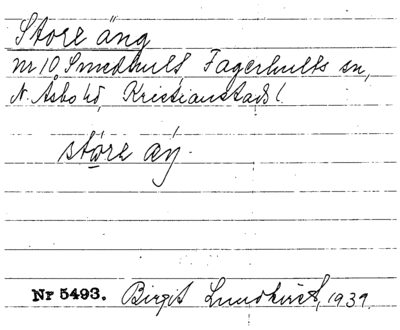 Store äng
nr 10 Smedhult, Fagerhults sn,
N. Åsbo hd, Kristianstads l.
støre äŋ.
Nr 5493. Birgit Lundkvist, 1939.